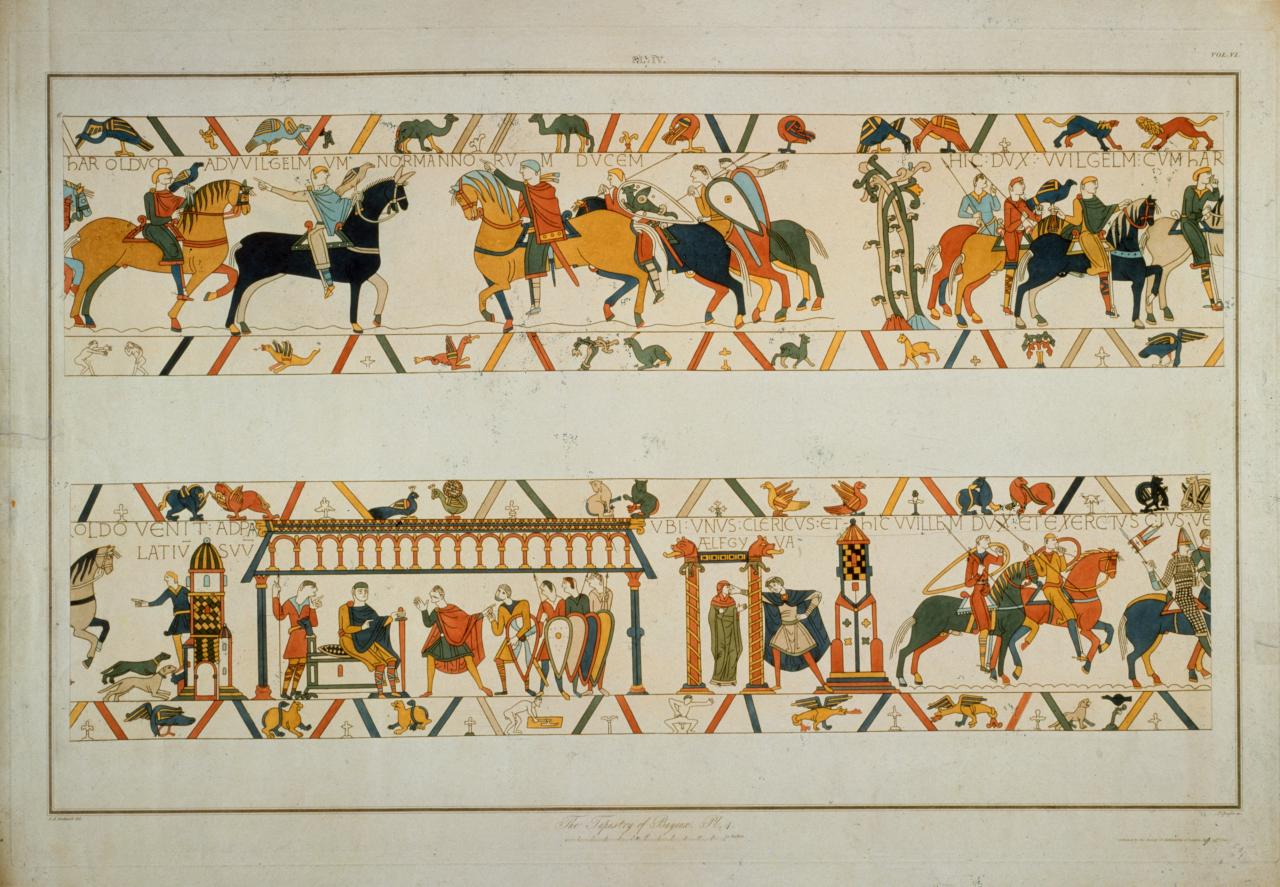 PL. IV.
VOL. VI.
6
7
hAROLDVM ADVVILGELMVM NORMANNORVM DVCEM
HIC: DVX: VVILGELM: CVM hAR
OLDO VENIT: AD PA
LATIV̄ SVV̄
VBI: VNVS: CLERICVS: ET:
ÆLFGYVA
hIC VVILLEM DVX: ET EXERCITVS EIVS: VE
The Tapestry of Bayeux. Pl. 4.